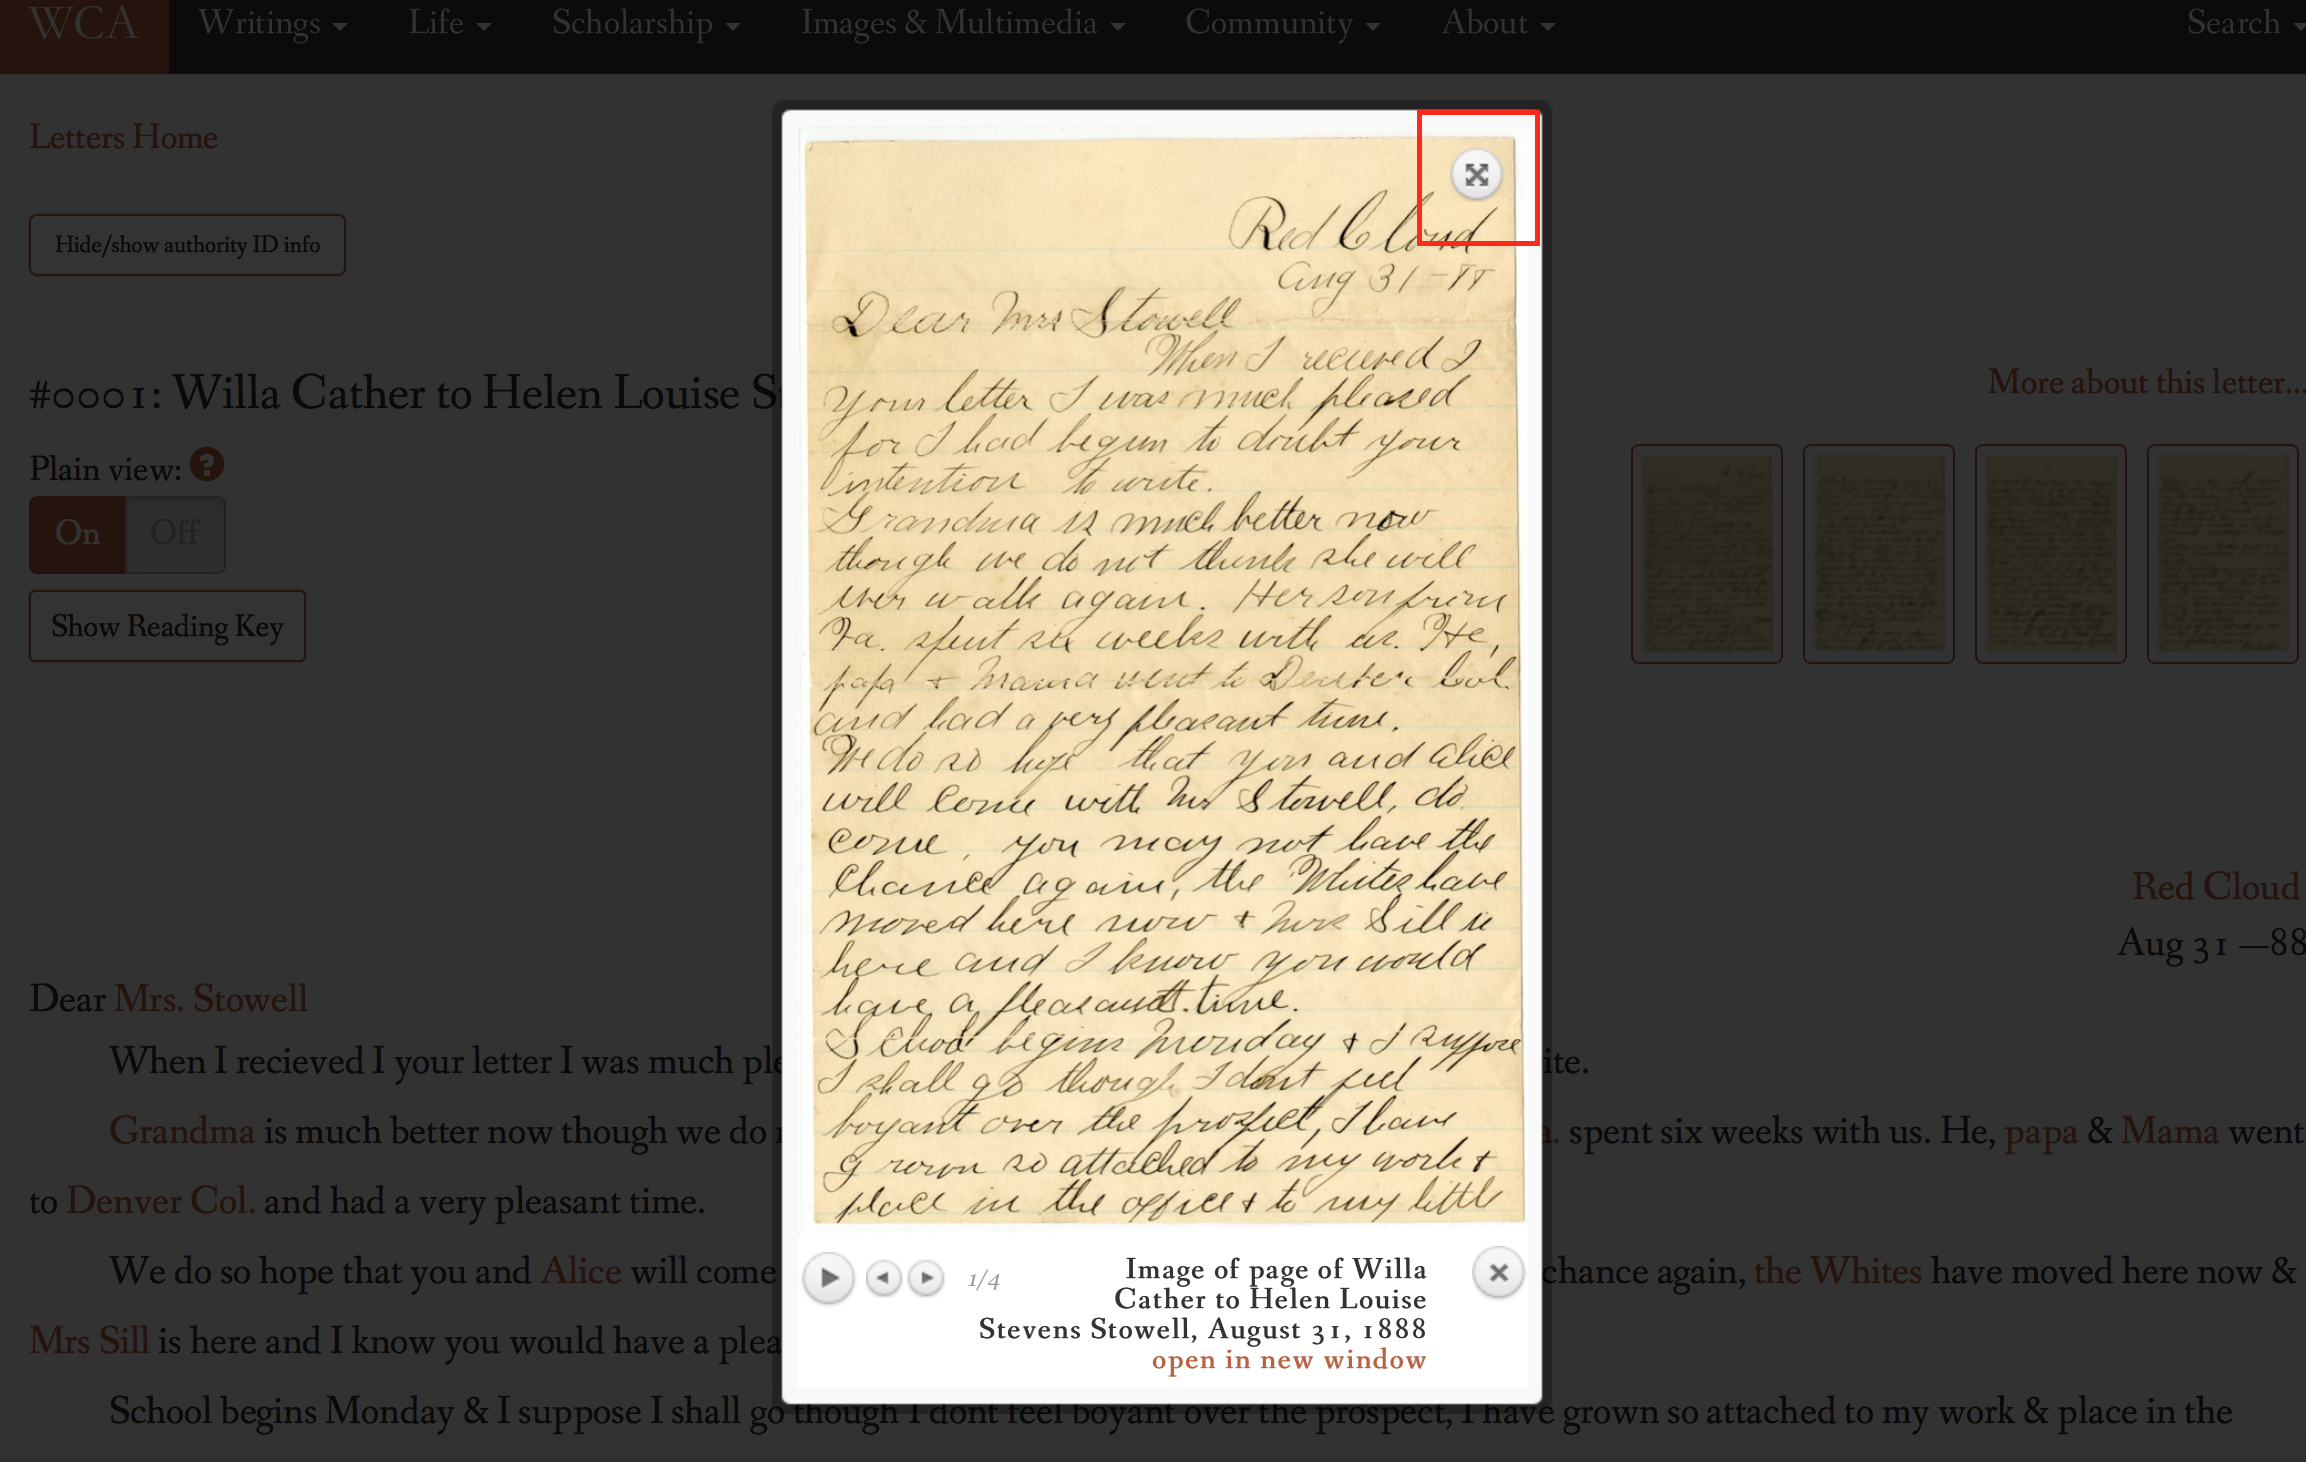 WCA Writings Life Scholarship Images & Multimedia Community About Search
Letters Home
Hide/show authority ID info
#0001: Willa Cather to Helen Louise S
Plain view: ?
On Off
Show Reading Key
More about this letter...
Red Cloud
Aug 31 —88
Dear Mrs. Stowell
When I recieved I your letter I was much ple
ite.
Grandma is much better now though we do
a. spent six weeks with us. He, papa & Mama went
to Denver Col. and had a very pleasant time.
We do so hope that you and Alice will come
chance again, the Whites have moved here now &
Mrs Sill is here and I know you would have a plea
School begins Monday & I suppose I shall go though I dont feel boyant over the prospect, I have grown so attached to my work & place in the
Red Cloud
Aug 31-88
Dear Mrs Stowell
When I recieved I
your letter I was much pleased
for I had begun to doubt your
intention to write.
Grandma is much better now
though we do not think she will
ever walk again. Her son from
Va. spent six weeks with us. He,
papa & Mama went to Denver Col.
and had a very pleasant time.
We do so hope that you and Alice
will come with Mr Stowell, do
come, you may not have the
chance again, the Whites have
moved here now & Mrs Sill is
here and I know you would
have a pleasant time.
School begins Monday & I suppose
I shall go though I dont feel
boyant over the prospect, I have
grown so attached to my work &
place in the office & to my little
1/4
Image of page of Willa
Cather to Helen Louise
Stevens Stowell, August 31, 1888
open in new window